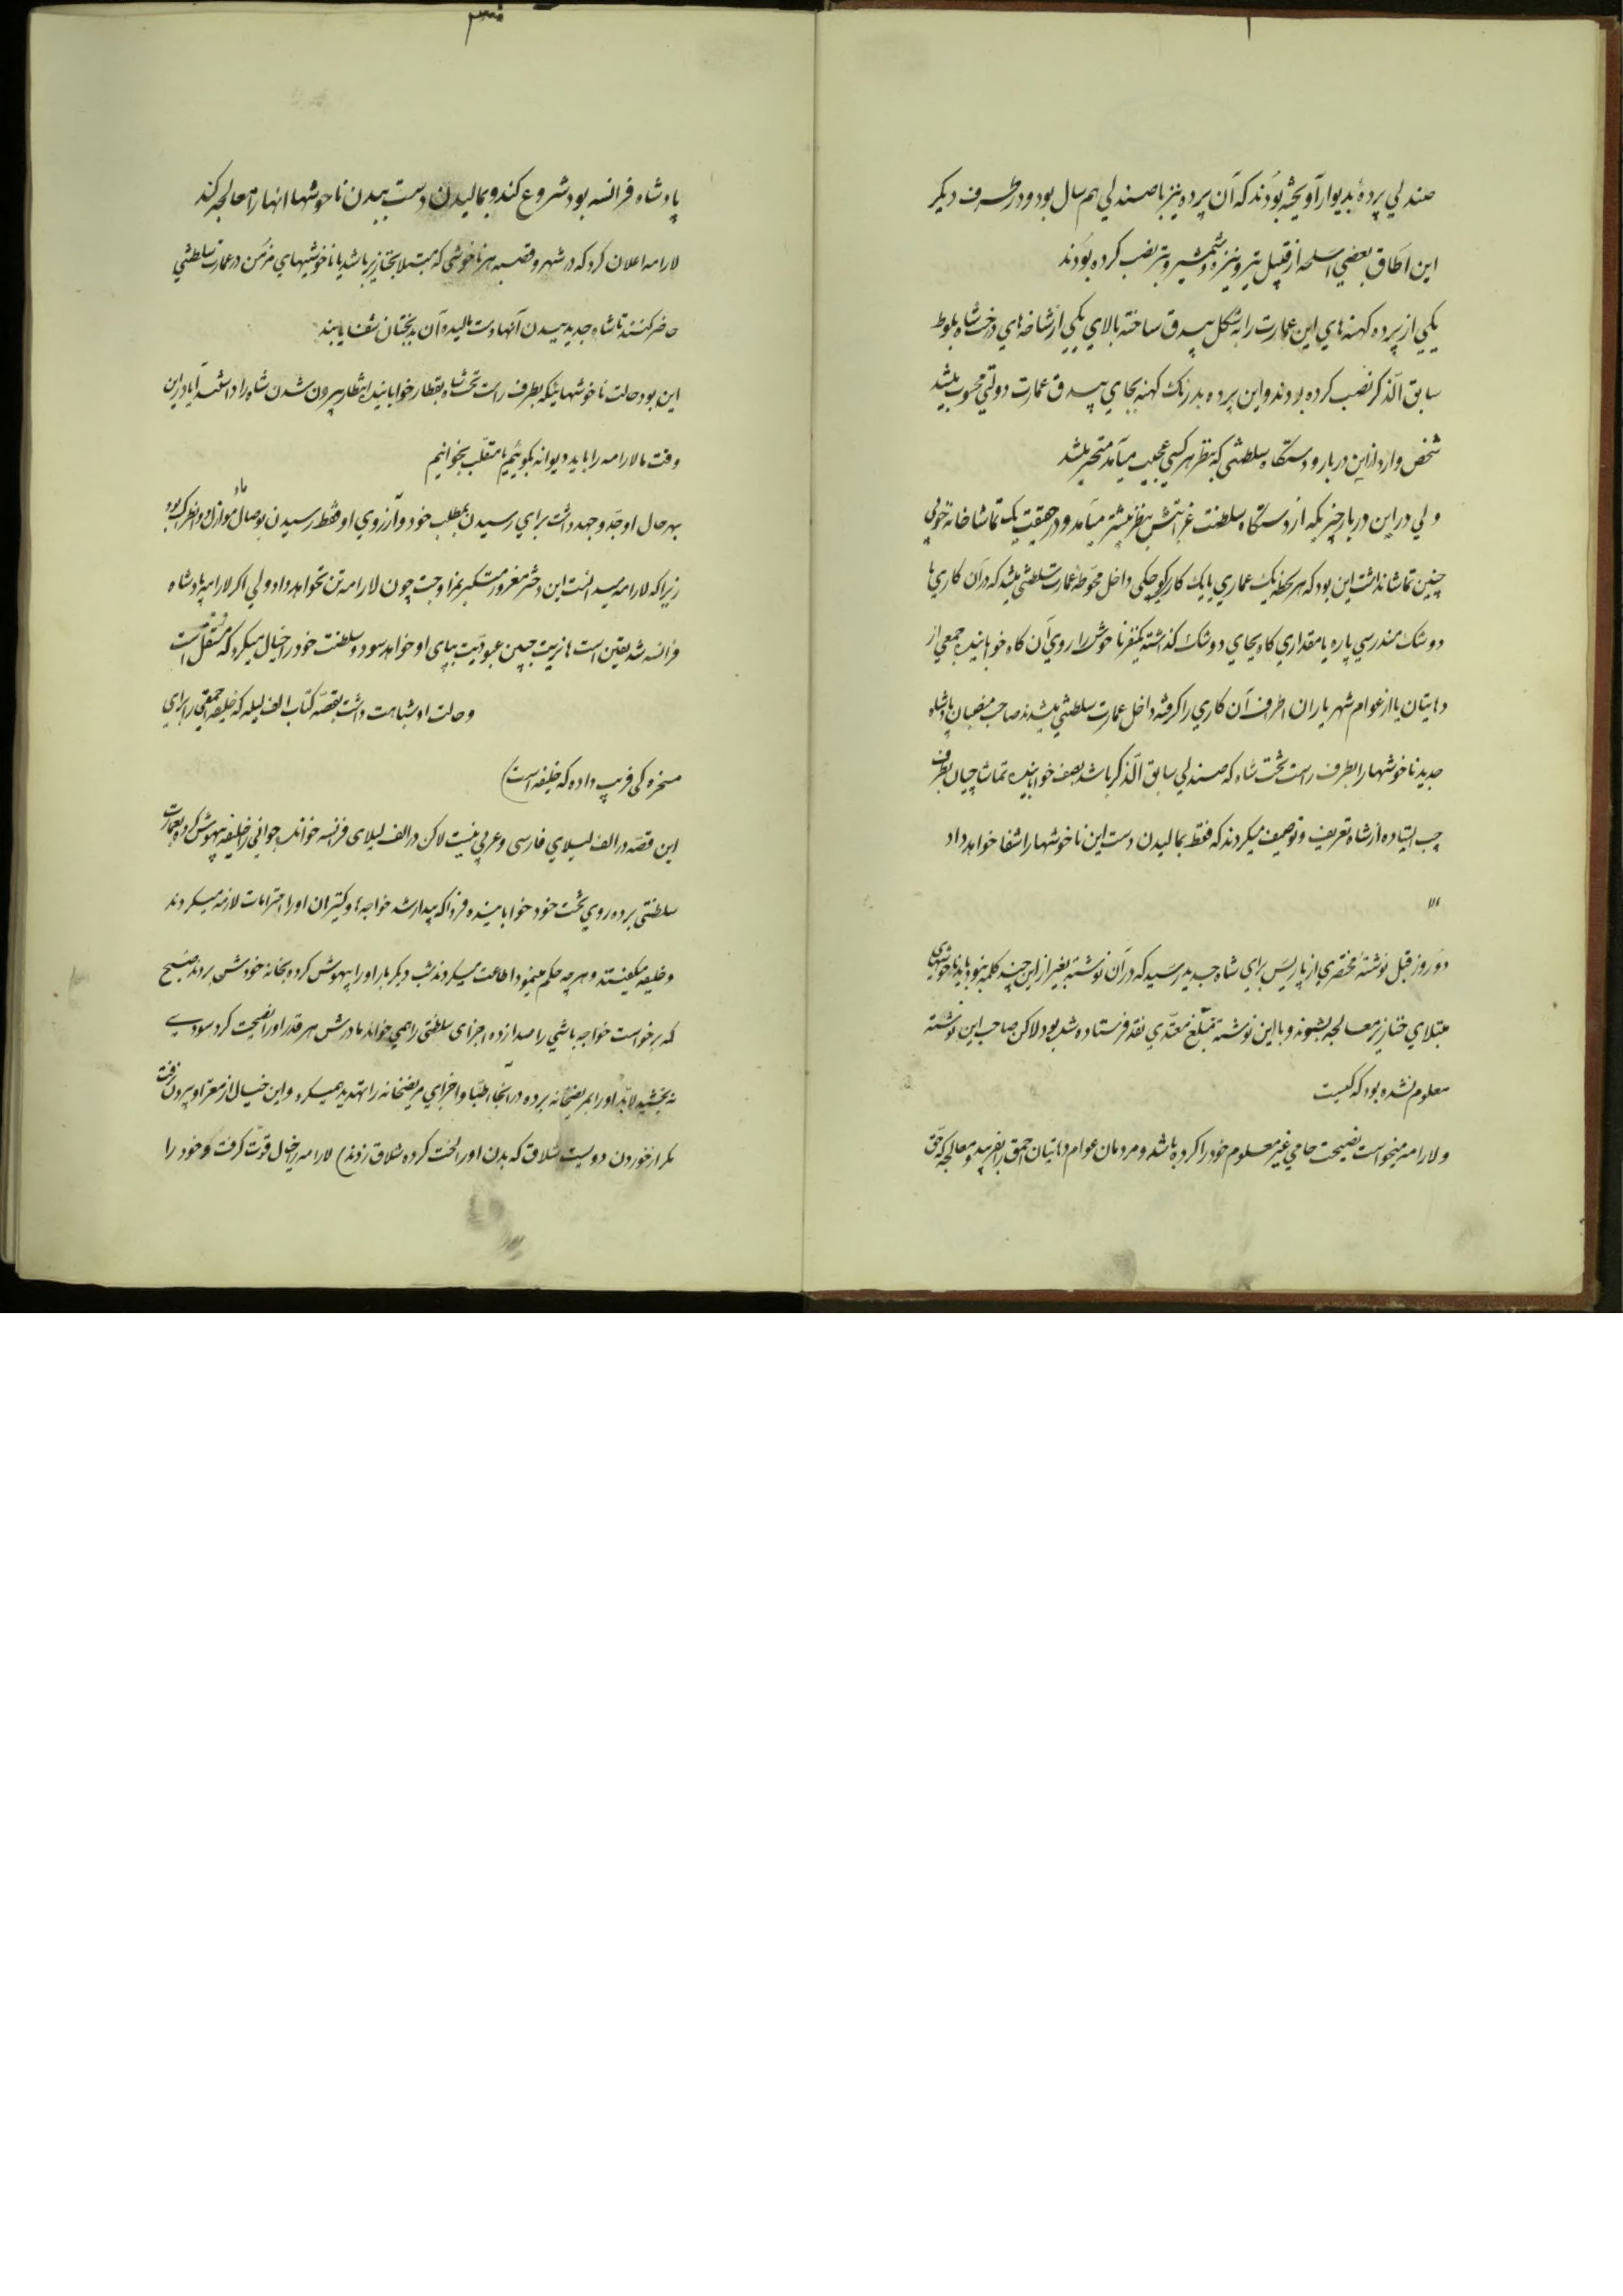 صندلي پردهٔ بديوار آويخته بودند كه آن پرده نيز با صندلي هم سال بود و در طرف ديكر
اين اطاق بعضي اسلحه از قبيل تير و نيزه و شمشير و تبر نصب كرده بودند
يكي از پرده كهنه هاي اين عمارت را به شكل بيدق ساخته بالاي يكي از شاخه هاي درخت شاه بلوط
سابق الذّكر نصب كرده بودند و اين پرده بدرنك كهنه بجاي بيدق عمارت دولتي محسوب ميشد
شخص وارد از اين دربار و دستكاه سلطنتي كه بنظر هر كسي عجيب ميآمد متحير ميشد
ولي در اين دربار چيزيكه از دستكاه سلطنت غرابتش بنظر بيشتر ميآمد و در حقيقت يك تماشاخانهٔ خوبي
چنين تماشا نداشت اين بود كه هر لحظه يك عماري يا يك كاري كوچكي داخل محوطهٔ عمارت سلطنتي ميشد كه در آن كاري يا
دوشك مندرسي پاره يا مقداري كاه بجاي دوشك كذاشته يكنفر ناخوش را روي آن كاه خوابانيده جمعي از
دهاتيان يا از عوام شهر ياران اطراف آن كاري را كرفته داخل عمارت سلطنتي ميشدند صاحب منصبان پادشاه
جديد ناخوشها را بطرف راست تخت شاه كه صندلي سابق الذّكر باشد بصف خوابانيده تماشاچيان بطرف
چپ ايستاده از شاه تعريف و توصيف ميكردند كه فقط بماليدن دست اين ناخوشها را شفا خواهد داد
دو روز قبل نوشتهٔ مختصري از پاريس براي شاه جديد رسيد كه در آن نوشته بغير از اين چند كلمه نبود بايد ناخوشهاي
مبتلاي خنازير معالجه بشوند و با اين نوشته مبلغ معتدّي نقد فرستاده شده بود لاكن صاحب اين نوشته
معلوم نشده بود كه كيست
و لارامه ميخواست نصيحت حامي غير معلوم خود را كرده باشد و مردمان عوام دهاتيان احمق را بفريبد و معالجه كه حق
پادشاه فرانسه بود شروع كند و بماليدن دست ببدن ناخوشها انها را معالجه كند
لارامه اعلان كرد كه در شهر و قصبه هر ناخوشي كه مبتلا بخنازير باشد يا ناخوشيهاي مزمن در عمارت سلطنتي
حاضر كنند تا شاه جديد ببدن آنها دست ماليده آن بدبختان شفا يابند
اين بود حالت ناخوشهائيكه بطرف راست تخت شاه بقطار خوابانيده انتظار بيرون شدن شاه را داشتند آيا در اين
وقت ما لارامه را بايد ديوانه بكوئيم يا متقلب بخوانيم
بهر حال او جدّ و جهد داشت براي رسيدن بمطلب خود و آرزوي او فقط رسيدن بوصال مادموازل دو انطراك بود
زيرا كه لارامه ميدانست اين دختر مغرور متكبر بمزاوجت چون لارامه تن نخواهد داد ولي اكر لارامه پادشاه
فرانسه شد يقين است نازنين جبين عبوديت بپاي او خواهد سود و سلطنت خود را خيال ميكرد كه مستقل است
و حالت او شباهت داشت بقصهٔ كتاب الف ليله كه خليفه احمقي را براي
مسخره كي فريب داده كه خليفه است)
اين قصّه در الف ليلاي فارسي و عربي نيست لاكن در الف ليلاي فرانسه خوانده جواني را خليفه بيهوش كرده بعمارت
سلطنتي برده روي تخت خود خوابانيده فردا كه بيدار شد خواجه ها و كنيزان او را احترامات لازمه ميكردند
و خليفه ميكفتند و هر چه حكم مينمود اطاعت ميكردند شب ديكر باز او را بيهوش كرده بخانه خودش بردند صبح
كه برخواست خواجه باشي را صدا زده اجزاي سلطنتي را همي خواند مادرش هر قدر او را نصيحت كرد سودي
نه بخشيد لابد او را بمريضخانه برده در آنجا اطبّا و اجزاي مريضخانه را تهديد ميكرد و اين خيال از مغز او بيرون نرفت
مكر از خوردن دويست شلاق كه بدن او را لخت كرده شلاق زدند) لارامه را خيال قوّت كرفت و خود را